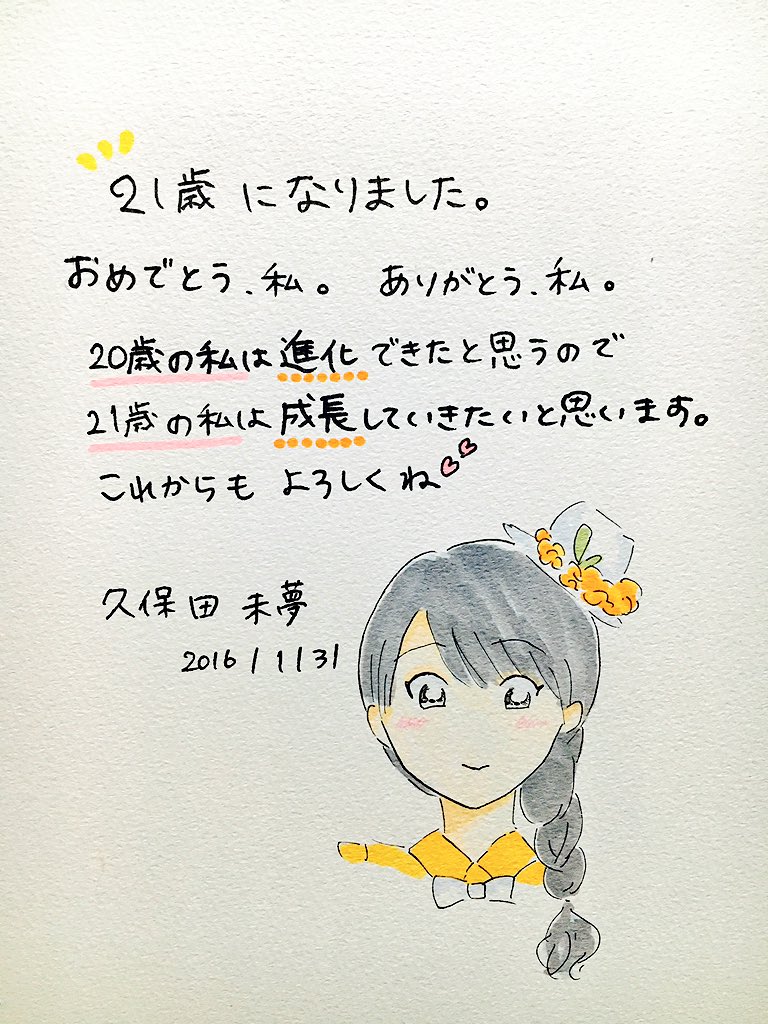 21歳になりました。
おめでとう、私。 ありがとう、私。
20歳の私は進化できたと思うので
21歳の私は成長していきたいと思います。
これからも よろしくね
久保田 未夢
2016/1/31